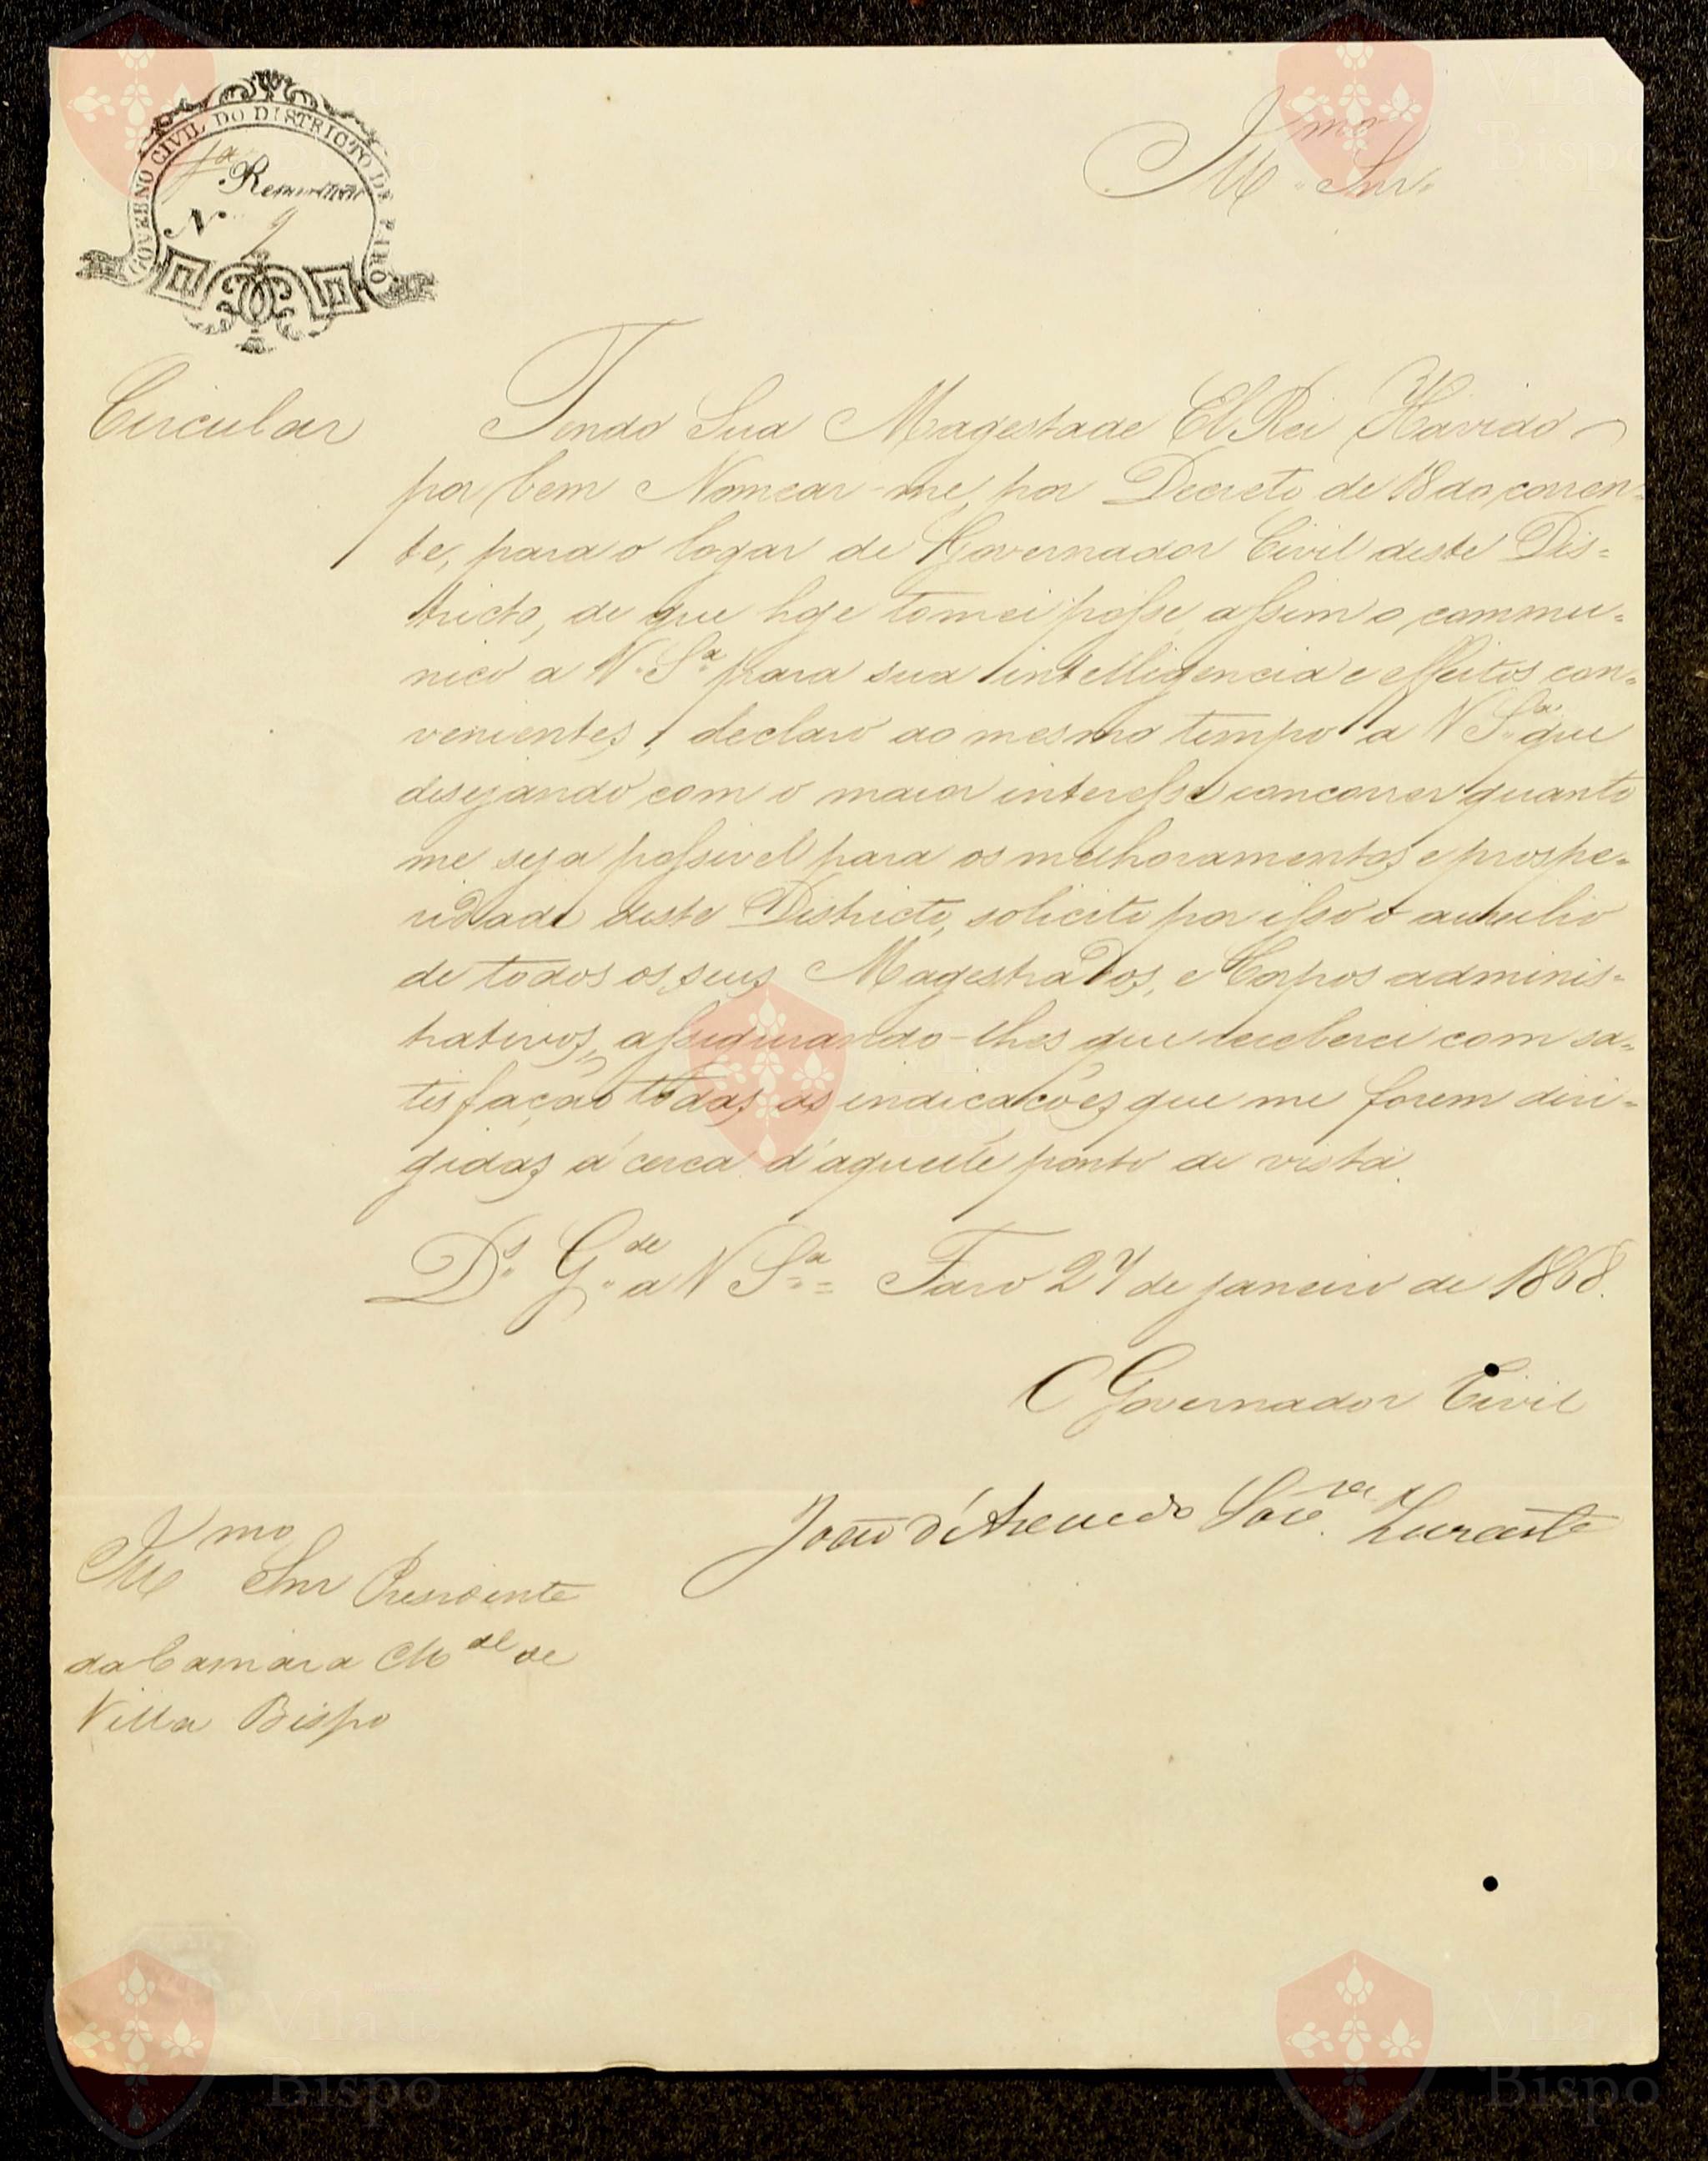 GOVERNO CIVIL DO DISTRICTO DE FARO
1ª Repartição
Nº 2
Illmo Snr.
Circular
Tendo Sua Magestade El Rei Havido
por bem Nomear-me, por Decreto de 18 do corren-
te, para o logar de Governador Civil deste Dis=
tricto, de que hoje tomei posse, assim o commu=
nico a V. Sª para sua intelligencia e effeitos con=
venientes; declaro ao mesmo tempo a V Sª que
desejando com o maior interesse concorrer quanto
me seja possivel para os melhoramentos e prospe=
ridade deste Districto, solicito por isso o auxilio
de todos os seus Magestrados, e Corpos adminis=
trativos, assegurando-lhes que receberei com sa=
tisfação todas as indicações que me forem diri=
gidas á cerca d'aquelle ponto de vista.
Ds. Gde a V Sª = Faro 27 de janeiro de 1868.
O Governador Civil
João d'Azevedo
Illmo Snr Presidente
da Camara Mal de
Villa Bispo
Vila do
Bispo